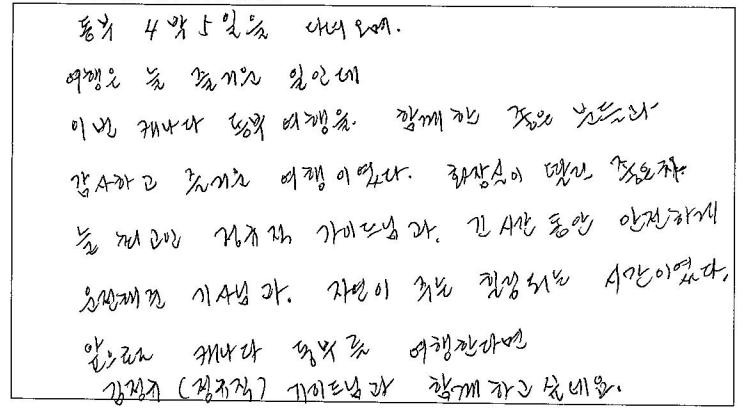 동부 4박5일을 다녀오며.
여행은 늘 즐거운 일인데
이번 캐나다 동부 여행을. 함께한 좋은 분들과
감사하고 즐거운 여행이였다. 화장실이 딸린 좋은차.
늘 최고인 정규직 가이드님과. 긴 시간 동안 안전하게
운전해준 기사님과. 자연이 주는 힐링되는 시간이였다.
앞으로도 캐나다 동부를 여행한다면
김정규 (정규직) 가이드님과 함께하고 싶네요.